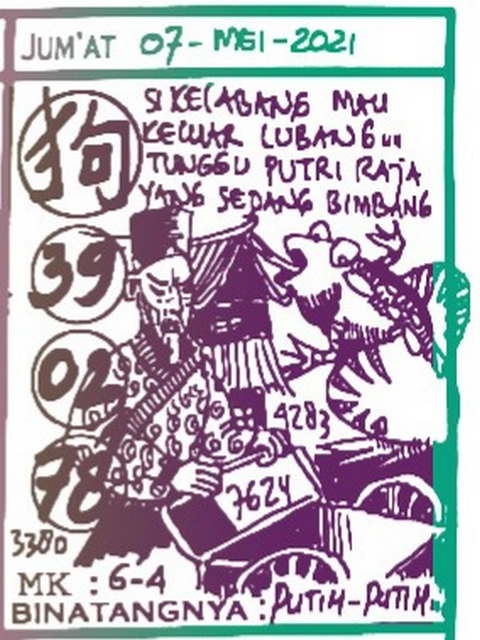 JUM'AT 07-MEI-2021
狗
SI KECABANG MAU
KELUAR LUBANG...
TUNGGU PUTRI RAJA
YANG SEDANG BIMBANG
39
02
4283
78
7624
3380
MK : 6-4
BINATANGNYA : PUTIH-PUTIH.